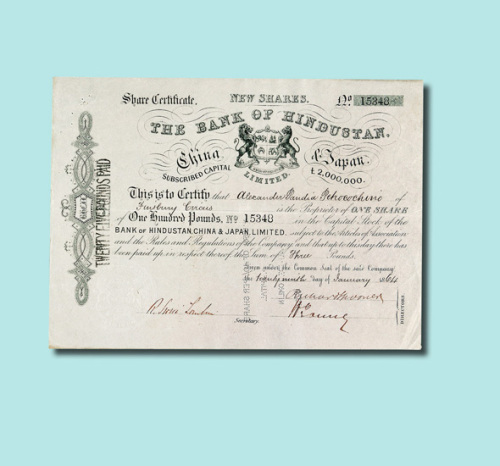 Share Certificate. NEW SHARES. No 15348
THE BANK OF HINDUSTAN,
China & Japan.
SUBSCRIBED CAPITAL LIMITED. £2,000,000.
This is to Certify that Alexander Pandia Petrocochino of
Finsbury Circus is the Proprietor of ONE SHARE
of One Hundred Pounds, No 15348 in the Capital Stock of the
BANK OF HINDUSTAN, CHINA & JAPAN, LIMITED. subject to the Articles of Association
and the Rules and Regulations of the Company, and that up to this day there has
been paid up in respect thereof the Sum of Three Pounds.
Given under the Common Seal of the said Company
the twenty ninth day of January 1864
Secretary.
DIRECTORS
TWENTY FIVE POUNDS PAID